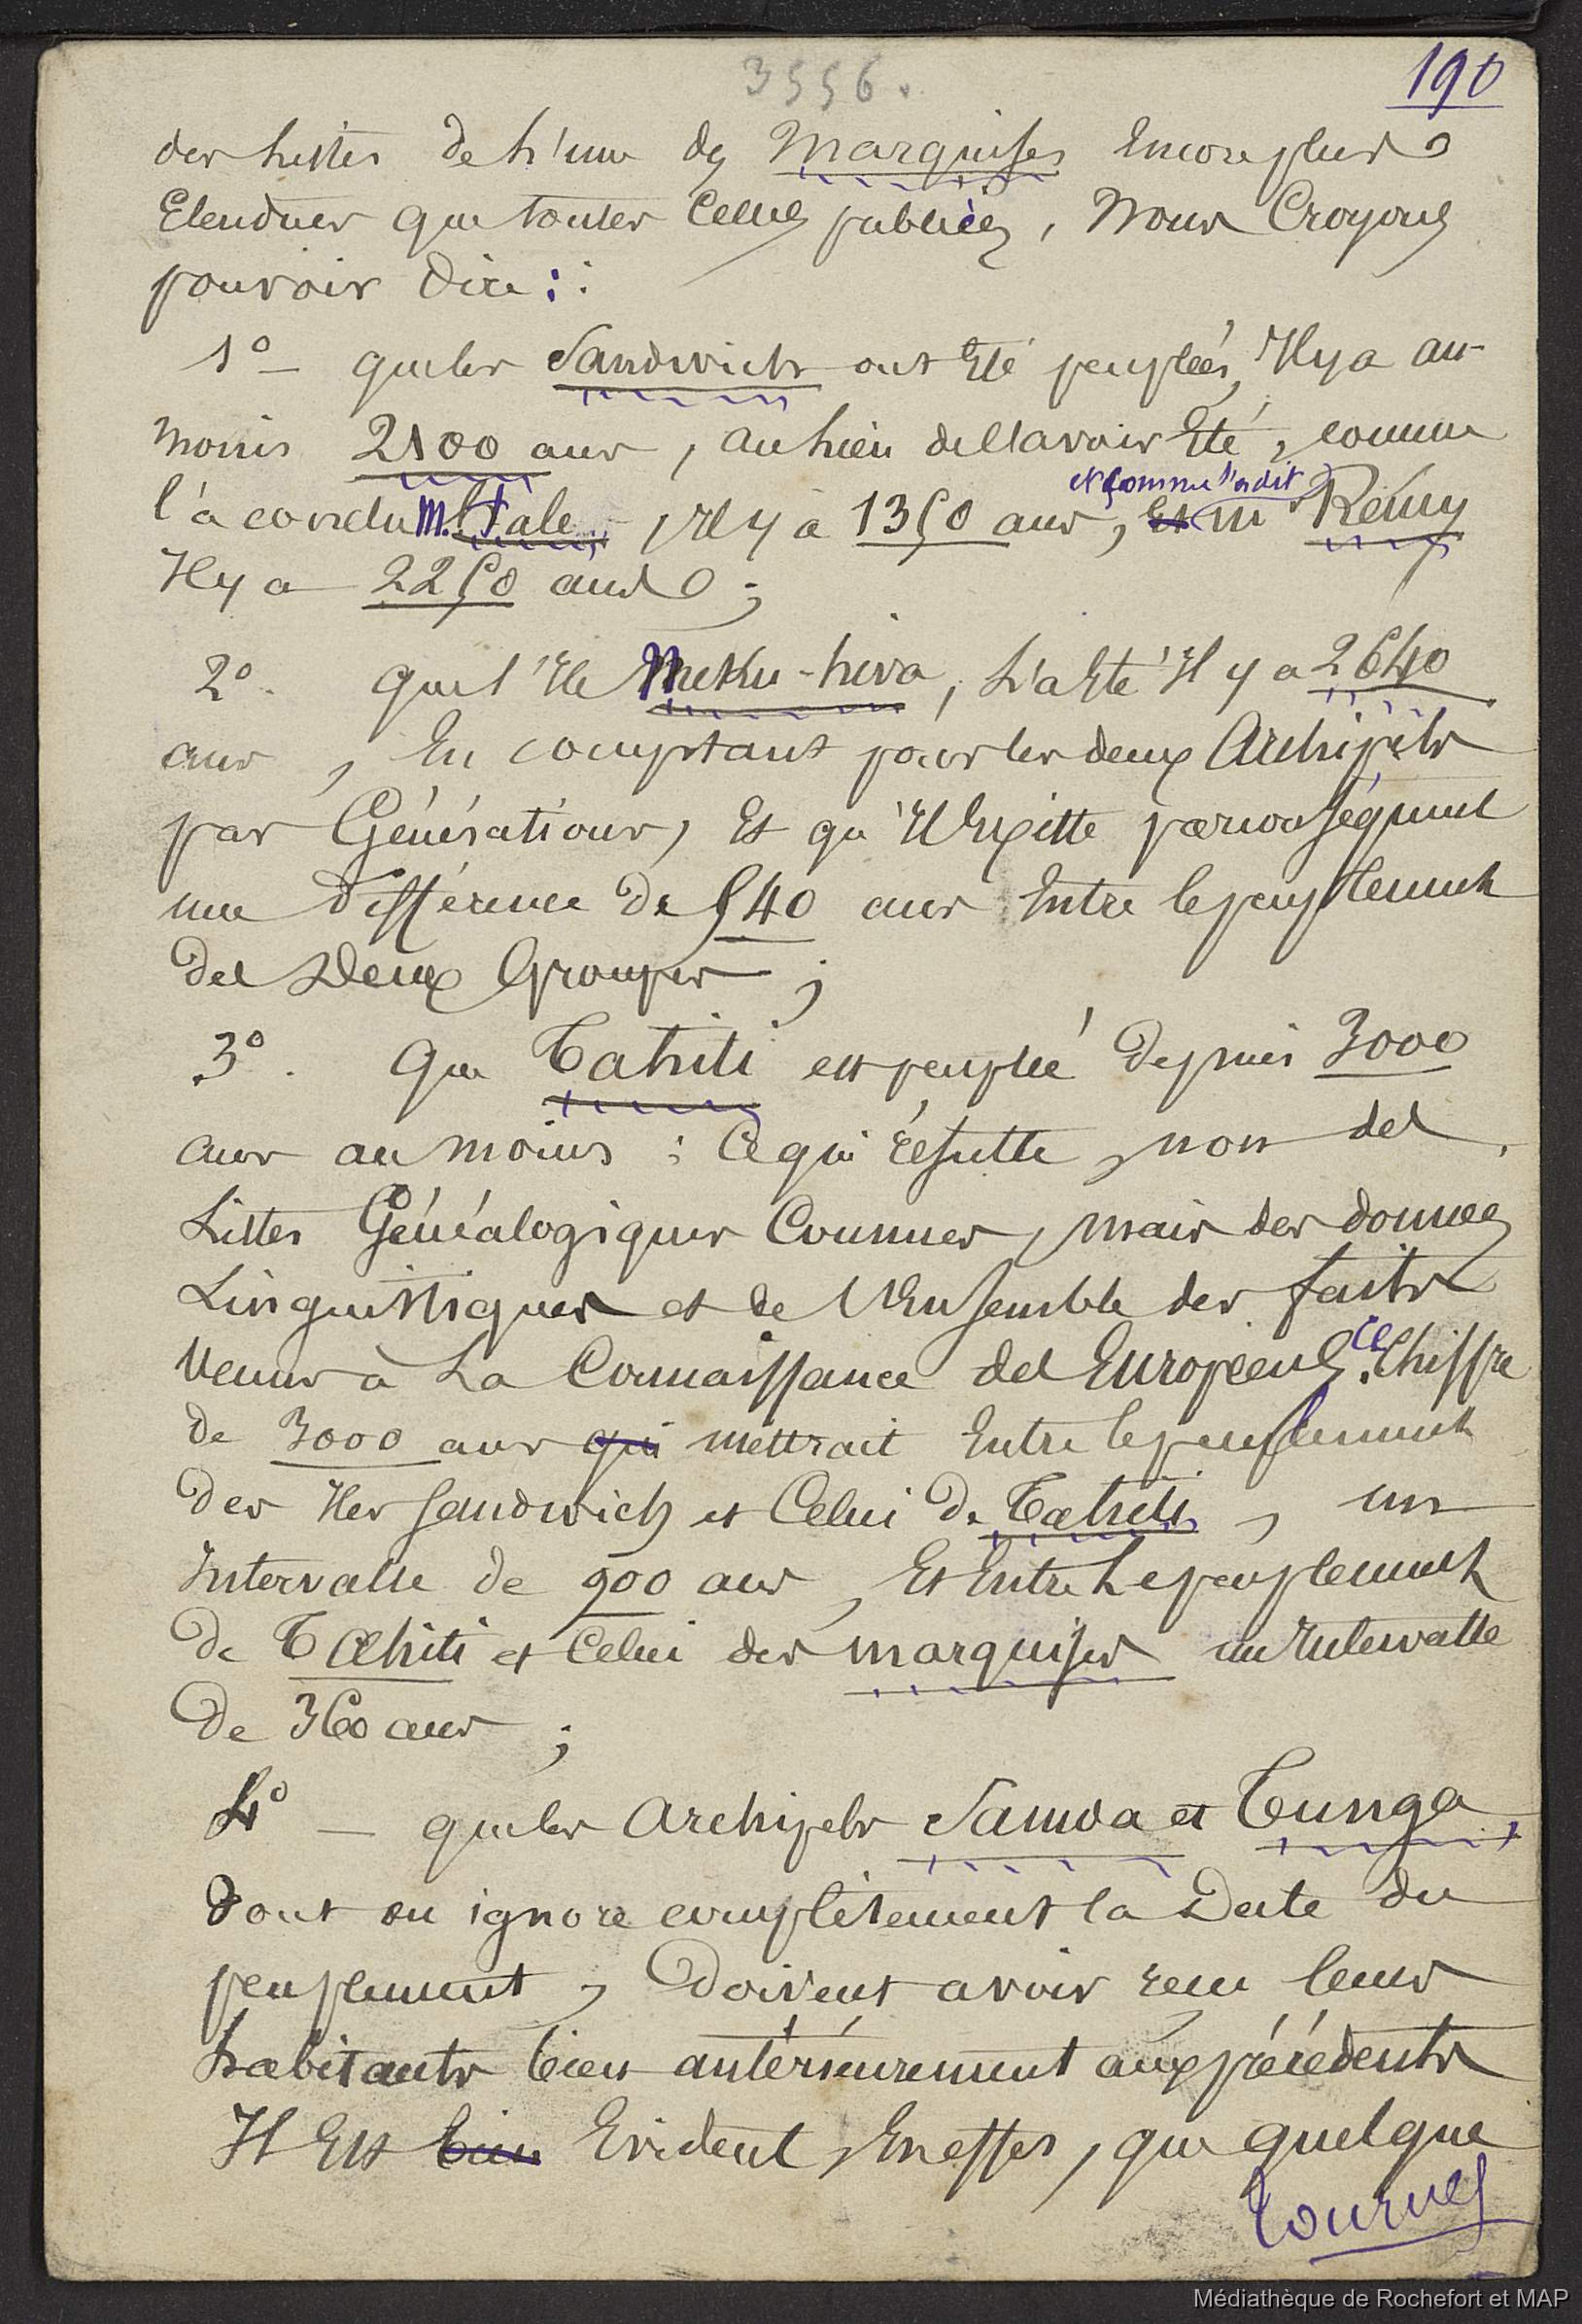 3556.
190
des listes de l'une des Marquises Encore plus
Etendues que toutes Celles publiées, Nous Croyons
pouvoir Dire :
1° — que les Sandwich ont Eté peuplées, Il y a au
moins 2100 ans, au lieu de l'avoir Eté, comme
l'a conclu M. Hale, Il y a 1350 ans, et comme l'a dit Mr Rémy
Il y a 2250 ans ;
2° . que l'Ile Nuku-hiva, L'a Eté Il y a 2640
ans, En comptant pour les deux Archipels
par Générations, Et qu'Il Existe par conséquent
une Différence de 540 ans Entre le peuplement
des Deux Groupes ;
3° . Que Tahiti est peuplé Depuis 3000
ans au moins : Ce qui résulte, non des
Listes Généalogiques Connues, mais des données
Linguistiques et de l'Ensemble des faits
Venus à La Connaissance des Européens. Ce Chiffre
de 3000 ans qui mettrait Entre le peuplement
des Iles Sandwich et Celui De Tahiti, un
Intervalle de 900 ans, Et Entre Le peuplement
De Tahiti et Celui des Marquises un Intervalle
De 360 ans ;
4° — que les Archipels Samoa et Tunga,
Dont on ignore complètement la Date du
peuplement, Doivent avoir reçu leurs
habitants bien antérieurement aux précédents
Il Est bien Evident, En effet, que quelque
tournez
Médiathèque de Rochefort et MAP